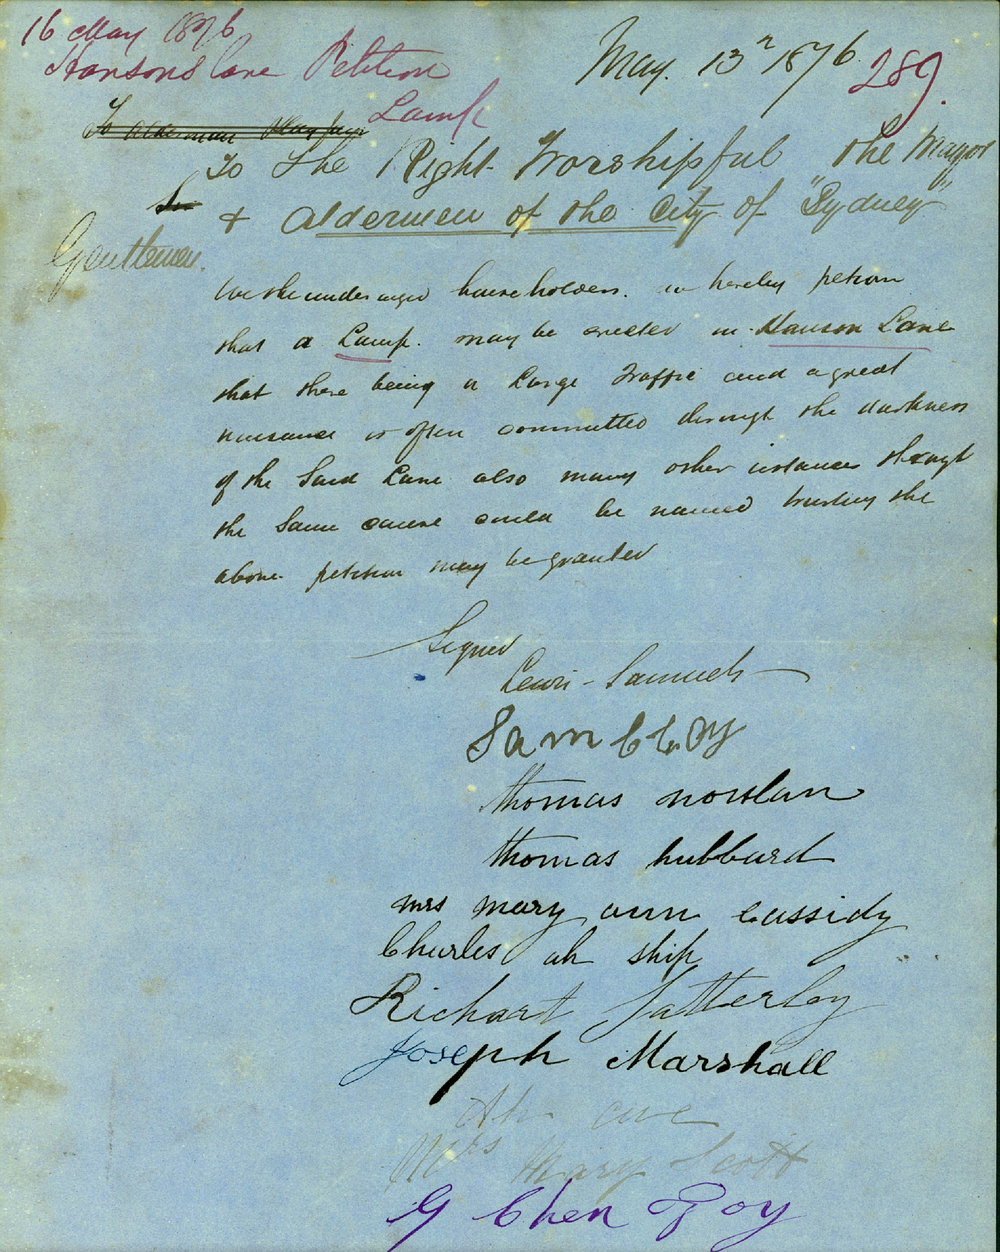 16 May 1876
Hansons Lane Petition
Lamp
May. 13th 1876.
289.
To Alderman
To The Right Worshipful the Mayor
& Aldermen of the City of "Sydney"
Gentlemen.
We the undersigned householders. do hereby petion
that a Lamp. may be erected in Hanson Lane
that there being a Large Traffic and a great
nuisance is often committed through the darkness
of the Said Lane also many other instances through
the Same cause could be named trusting the
above petition may be granted
Signed
Lewis Samuels
Sam
thomas nowlan
thomas hubbard
mrs mary ann Cassidy
Charles ah ship
Richard Satterley
Joseph Marshall
Ah
Mrs Mary Scott
G Chen Foy